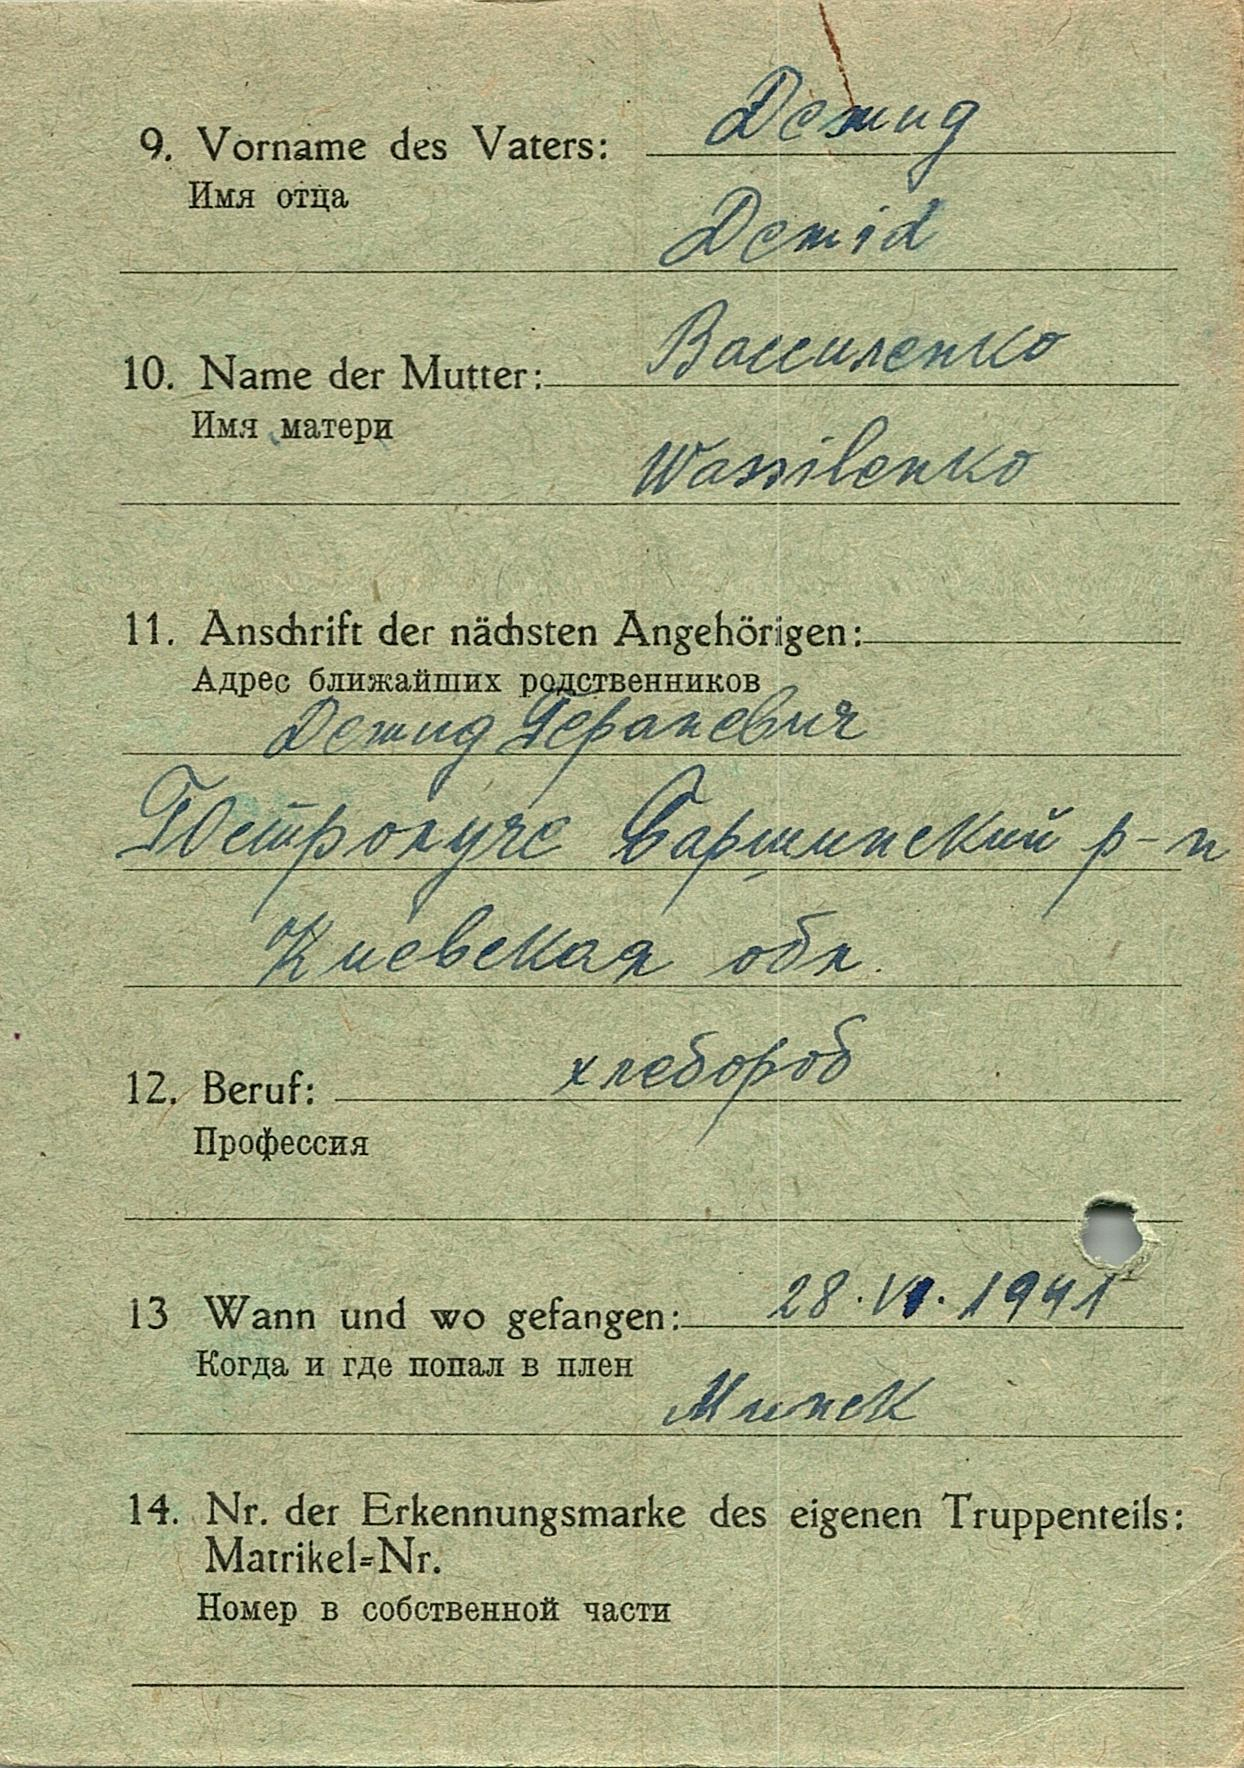 9. Vorname des Vaters: Демид
Имя отца
Demid
10. Name der Mutter: Василенко
Имя матери
Wassilenko
11. Anschrift der nächsten Angehörigen:
Адрес ближайших родственников
Демид
р-н
Киевская обл.
12. Beruf: хлебороб
Профессия
13 Wann und wo gefangen: 28.VI.1941
Когда и где попал в плен
Минск
14. Nr. der Erkennungsmarke des eigenen Truppenteils:
Matrikel=Nr.
Номер в собственной части